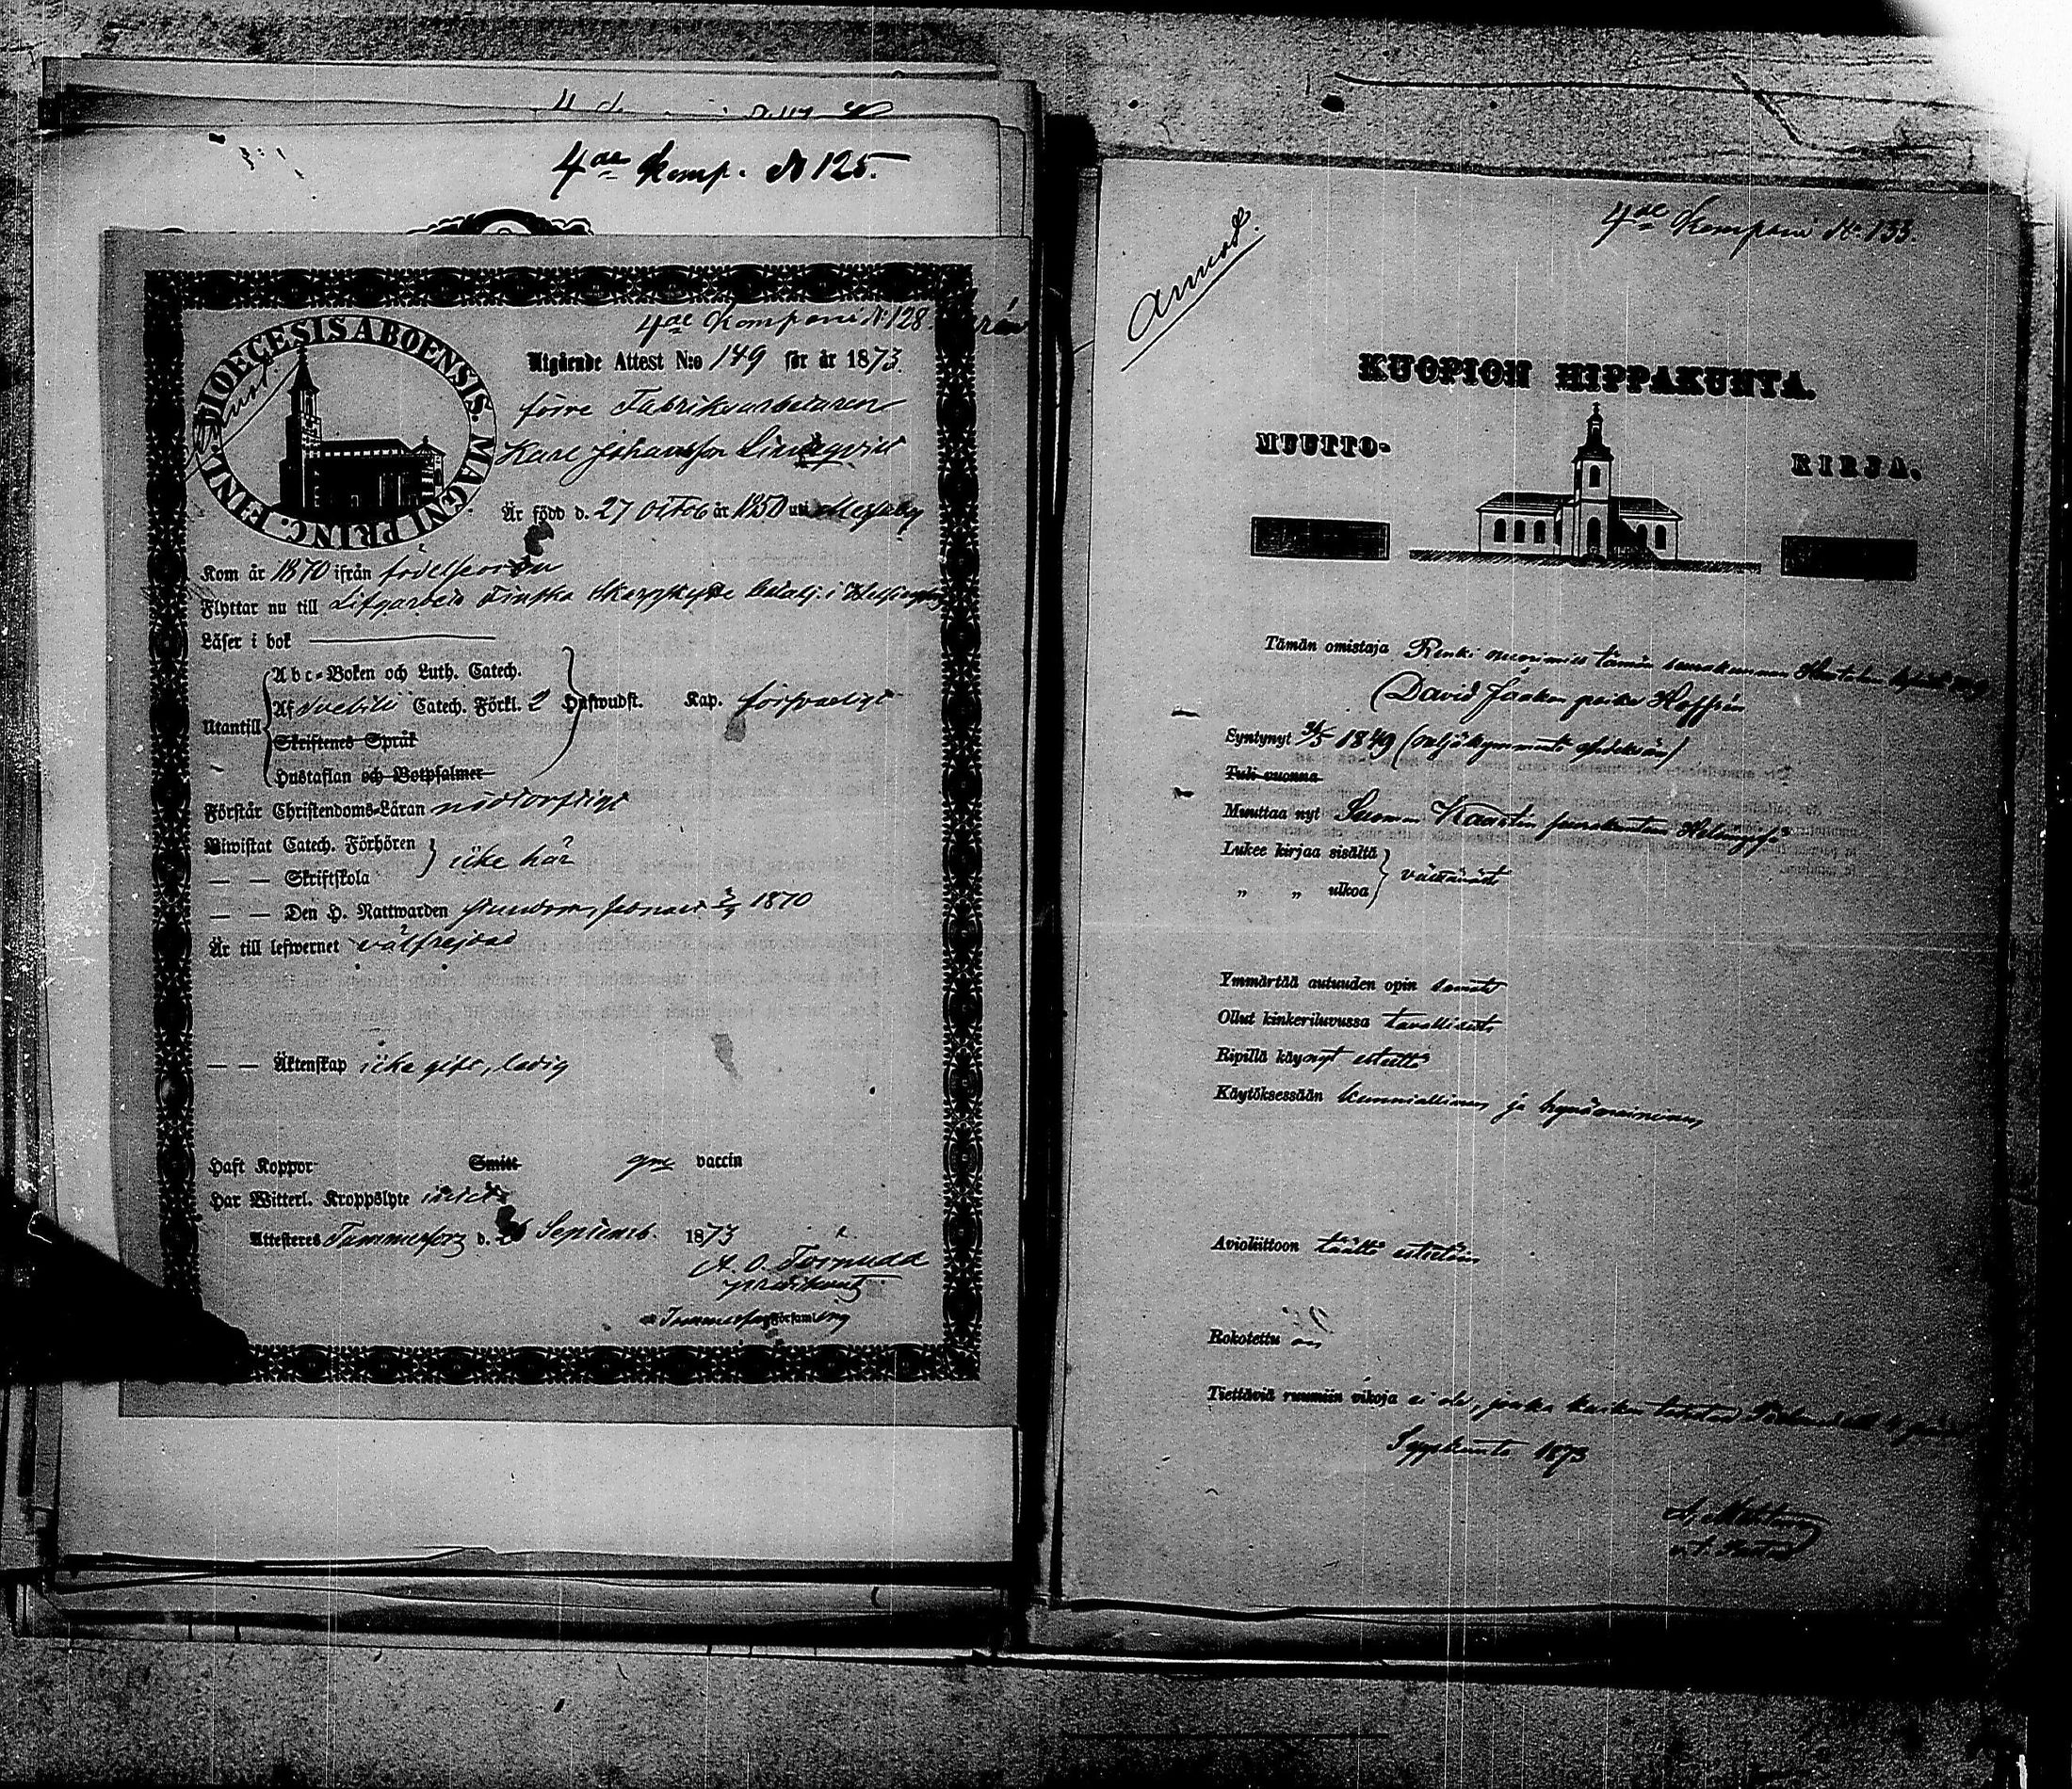 4de Komp. No 125.
4de Kompani No 128.
DIOECESIS ABOENSIS. MAGNI PRINC. FINL.
Utgående Attest N:o 149 för år 1873.
förre Fabriksarbetaren
Karl Johansson Lindqvist
Är född d. 27 Octob år 1850 uti Messuby
Kom år 1870 ifrån födelseorten
Flyttar nu till Lifgardets Finska Skarpskytte Batalj: i Helsingfors
Läser i bok
Utantill
Abc-Boken och Luth. Catech.
Af Svebilii Catech. Förkl. 2 Hufwudst. Kap. försvarligt
Skriftenes Språk
Hustaflan och Botpsalmer
Förstår Christendoms-Läran nödtorftigt
Biwistat Catech. Förhören
— — Skriftskola
icke här
— — Den H. Nattwarden 1870
Är till lefwernet välfrejdad
— — Äktenskap icke gift, ledig
Haft Koppor Smitt vaccin
Har Witterl. Kroppslyte intet
Attesteres Tammerfors d. 26 Septemb. 1873
A. O. Törnudd
Tammerfors Församling
4de Kompani No 133.
KUOPION HIPPAKUNTA.
MUUTTO-
KIRJA.
Tämän omistaja Renki nuorimies tämän seurakunnan
David Jaakon poika Hoffrén
Syntynyt 31/5 1849 (neljäkymmentä yhdeksän)
Tuli vuonna
Muuttaa nyt Suomen Kaartin seurakuntaan Helsingissä
Lukee kirjaa sisältä
„ „ ulkoa
välttävästi
Ymmärtää autuuden opin samate
Ollut kinkeriluvussa tavallisesti
Ripillä käynyt esteettä
Käytöksessään kunniallinen ja hyvämaineinen,
Avioliittoon täältä esteetön
Rokotettu on
Tiettäviä ruumiin vikoja ei ole, jonka kautta todistaa
Syyskuuta 1873